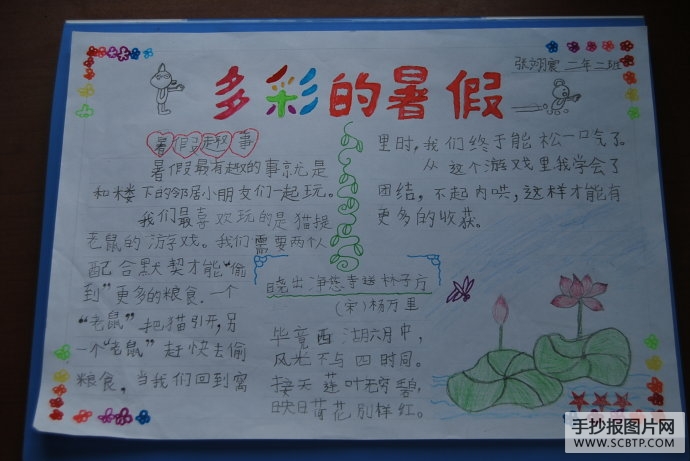 多彩的暑假
张翊宸 二年二班
暑假趣事
暑假最有趣的事就是
和楼下的邻居小朋友们一起玩。
我们最喜欢玩的是猫捉
老鼠的游戏。我们需要两人
配合默契才能“偷
到”更多的粮食。一个
“老鼠”把猫引开,另
一个“老鼠”赶快去偷
粮食。当我们回到窝
里时,我们终于能松一口气了。
从这个游戏里我学会了
团结,不起内哄,这样才能有
更多的收获。
晓出净慈寺送林子方
(宋)杨万里
毕竟西湖六月中,
风光不与四时同。
接天莲叶无穷碧,
映日荷花别样红。
手抄报图片网
WWW.SCBTP.COM